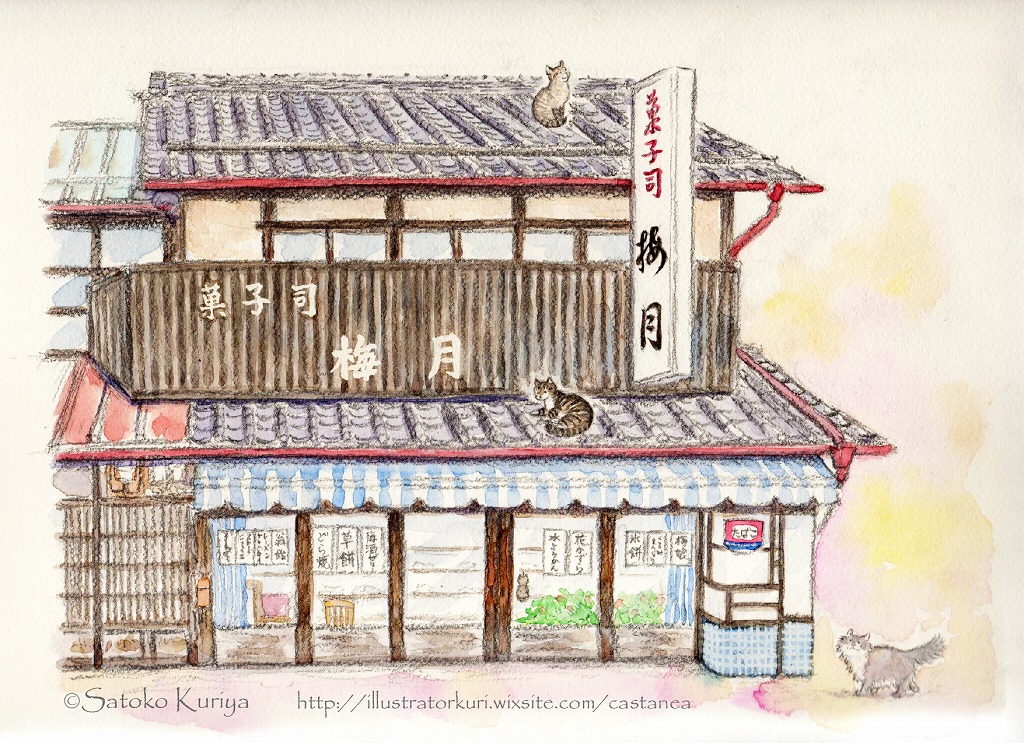 菓子司 梅月
菓子司
梅月
どら焼
草餅
梅酒ゼリー
水ようかん
花かずら
氷餅
梅姫
たばこ
©Satoko Kuriya http://illustratorkuri.wixsite.com/castanea